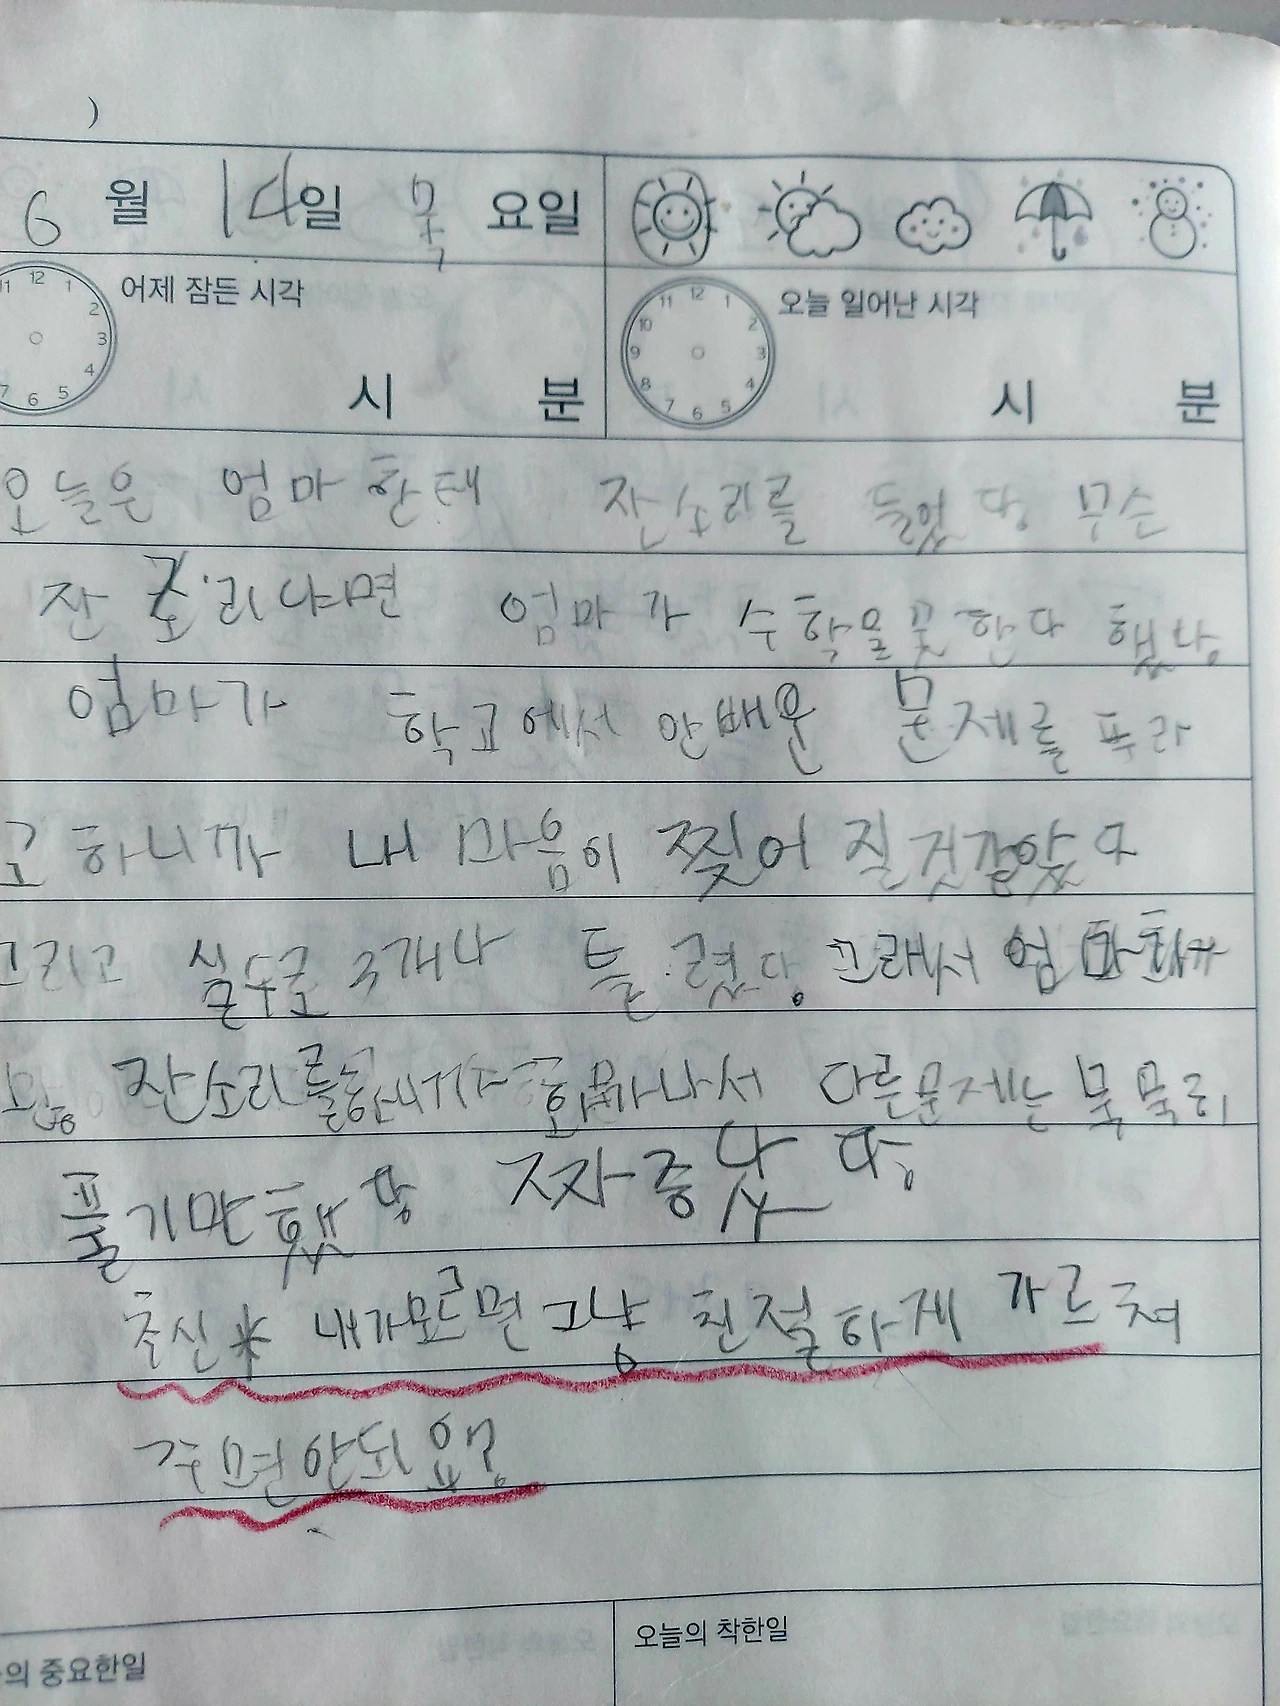 )
6 월 14일 목 요일
12 1 2 3 4 5 6 7 11
어제 잠든 시각
시 분
12 1 2 3 4 5 6 7 8 9 10 11
오늘 일어난 시각
시 분
오늘은 엄마한태 잔소리를 들었당 무슨
잔소리냐면 엄마가 수학을 못한다 했당
엄마가 학교에서 안배운 문제를 푸라
고 하니까 내 마음이 찢어 질것같았다
그리고 실수로 3개나 틀렸당 그래서 엄마한태
잔소리를 화가나서 다른문제는 묵묵히
풀기만했당 짜증났당
추신* 내가모르면 그냥 친절하게 가르쳐
주면안되요?
의 중요한일
오늘의 착한일